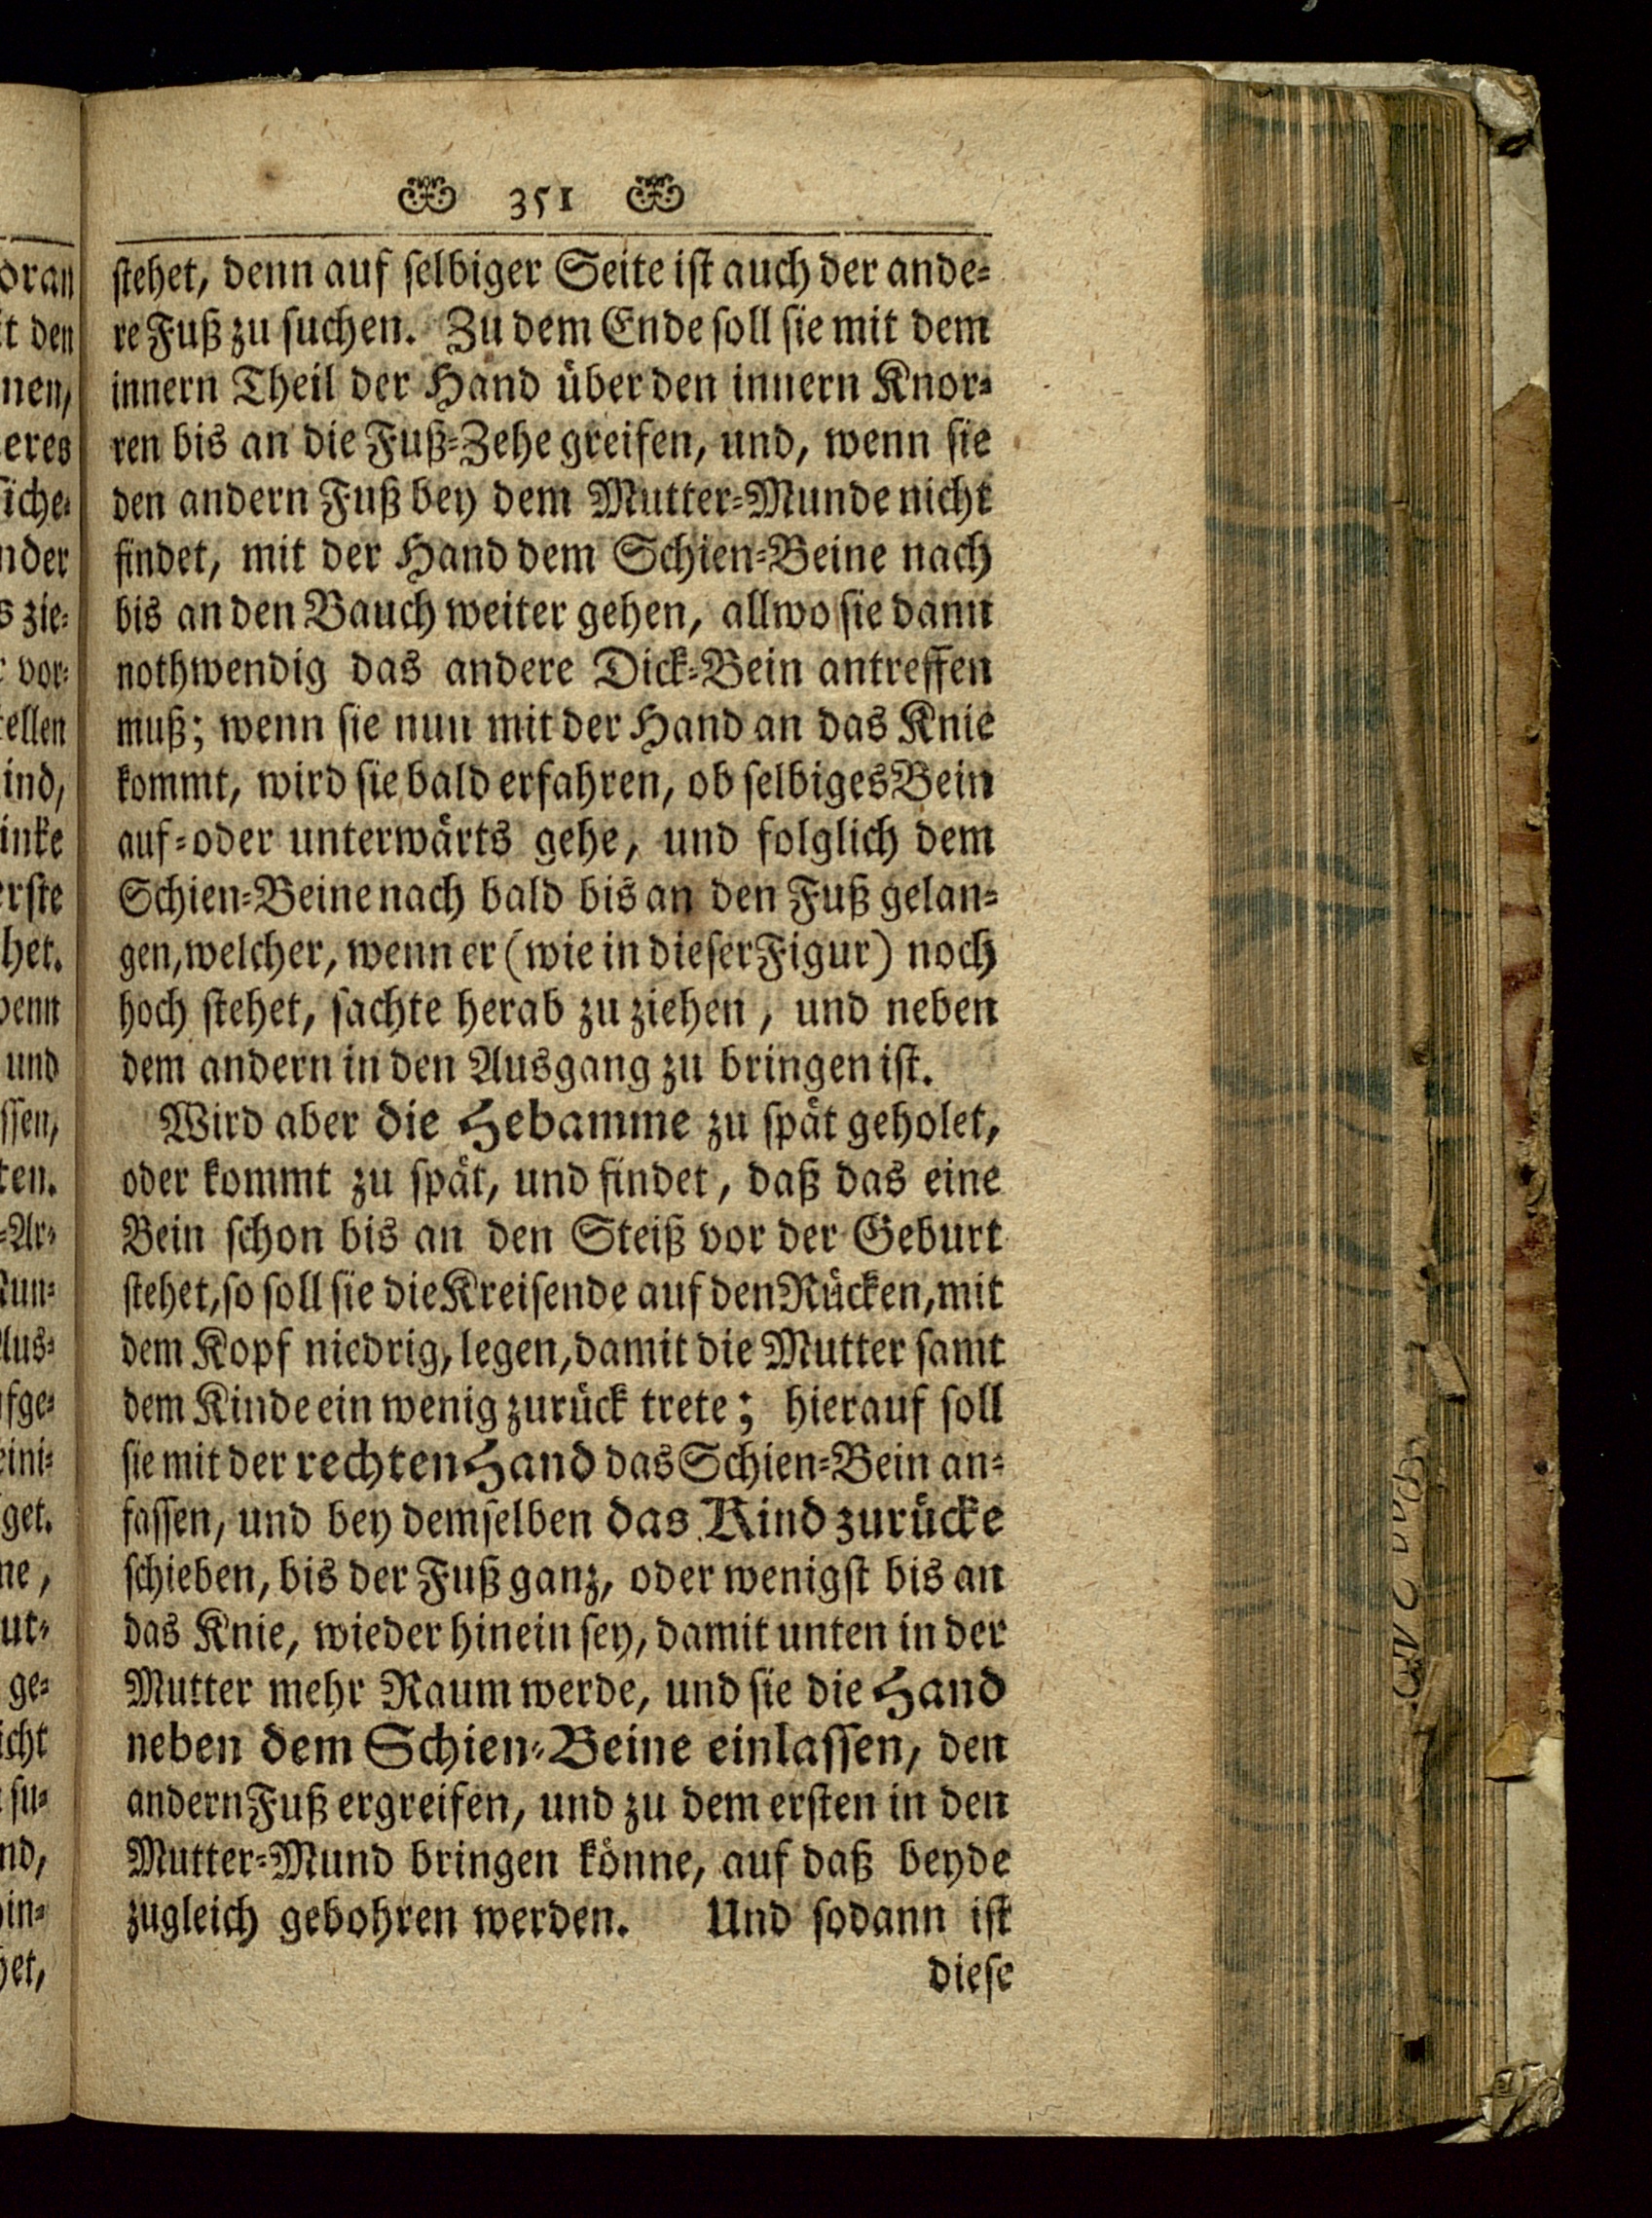 351
stehet, denn auf selbiger Seite ist auch der ande-
re Fuß zu suchen. Zu dem Ende soll sie mit dem
innern Theil der Hand über den innern Knor-
ren bis an die Fuß-Zehe greifen, und, wenn sie
den andern Fuß bey dem Mutter-Munde nicht
findet, mit der Hand dem Schien-Beine nach
bis an den Bauch weiter gehen, allwo sie dann
nothwendig das andere Dick-Bein antreffen
muß; wenn sie nun mit der Hand an das Knie
kommt, wird sie bald erfahren, ob selbiges Bein
auf-oder unterwärts gehe, und folglich dem
Schien-Beine nach bald bis an den Fuß gelan-
gen, welcher, wenn er (wie in dieser Figur) noch
hoch stehet, sachte herab zu ziehen, und neben
dem andern in den Ausgang zu bringen ist.
Wird aber die Hebamme zu spät geholet,
oder kommt zu spät, und findet, daß das eine
Bein schon bis an den Steiß vor der Geburt
stehet, so soll sie die Kreisende auf den Rücken, mit
dem Kopf niedrig, legen, damit die Mutter samt
dem Kinde ein wenig zurück trete; hierauf soll
sie mit der rechten Hand das Schien-Bein an-
fassen, und bey demselben das Kind zurücke
schieben, bis der Fuß ganz, oder wenigst bis an
das Knie, wieder hinein sey, damit unten in der
Mutter mehr Raum werde, und sie die Hand
neben dem Schien-Beine einlassen, den
andern Fuß ergreifen, und zu dem ersten in den
Mutter-Mund bringen könne, auf daß beyde
zugleich gebohren werden. Und sodann ist
diese